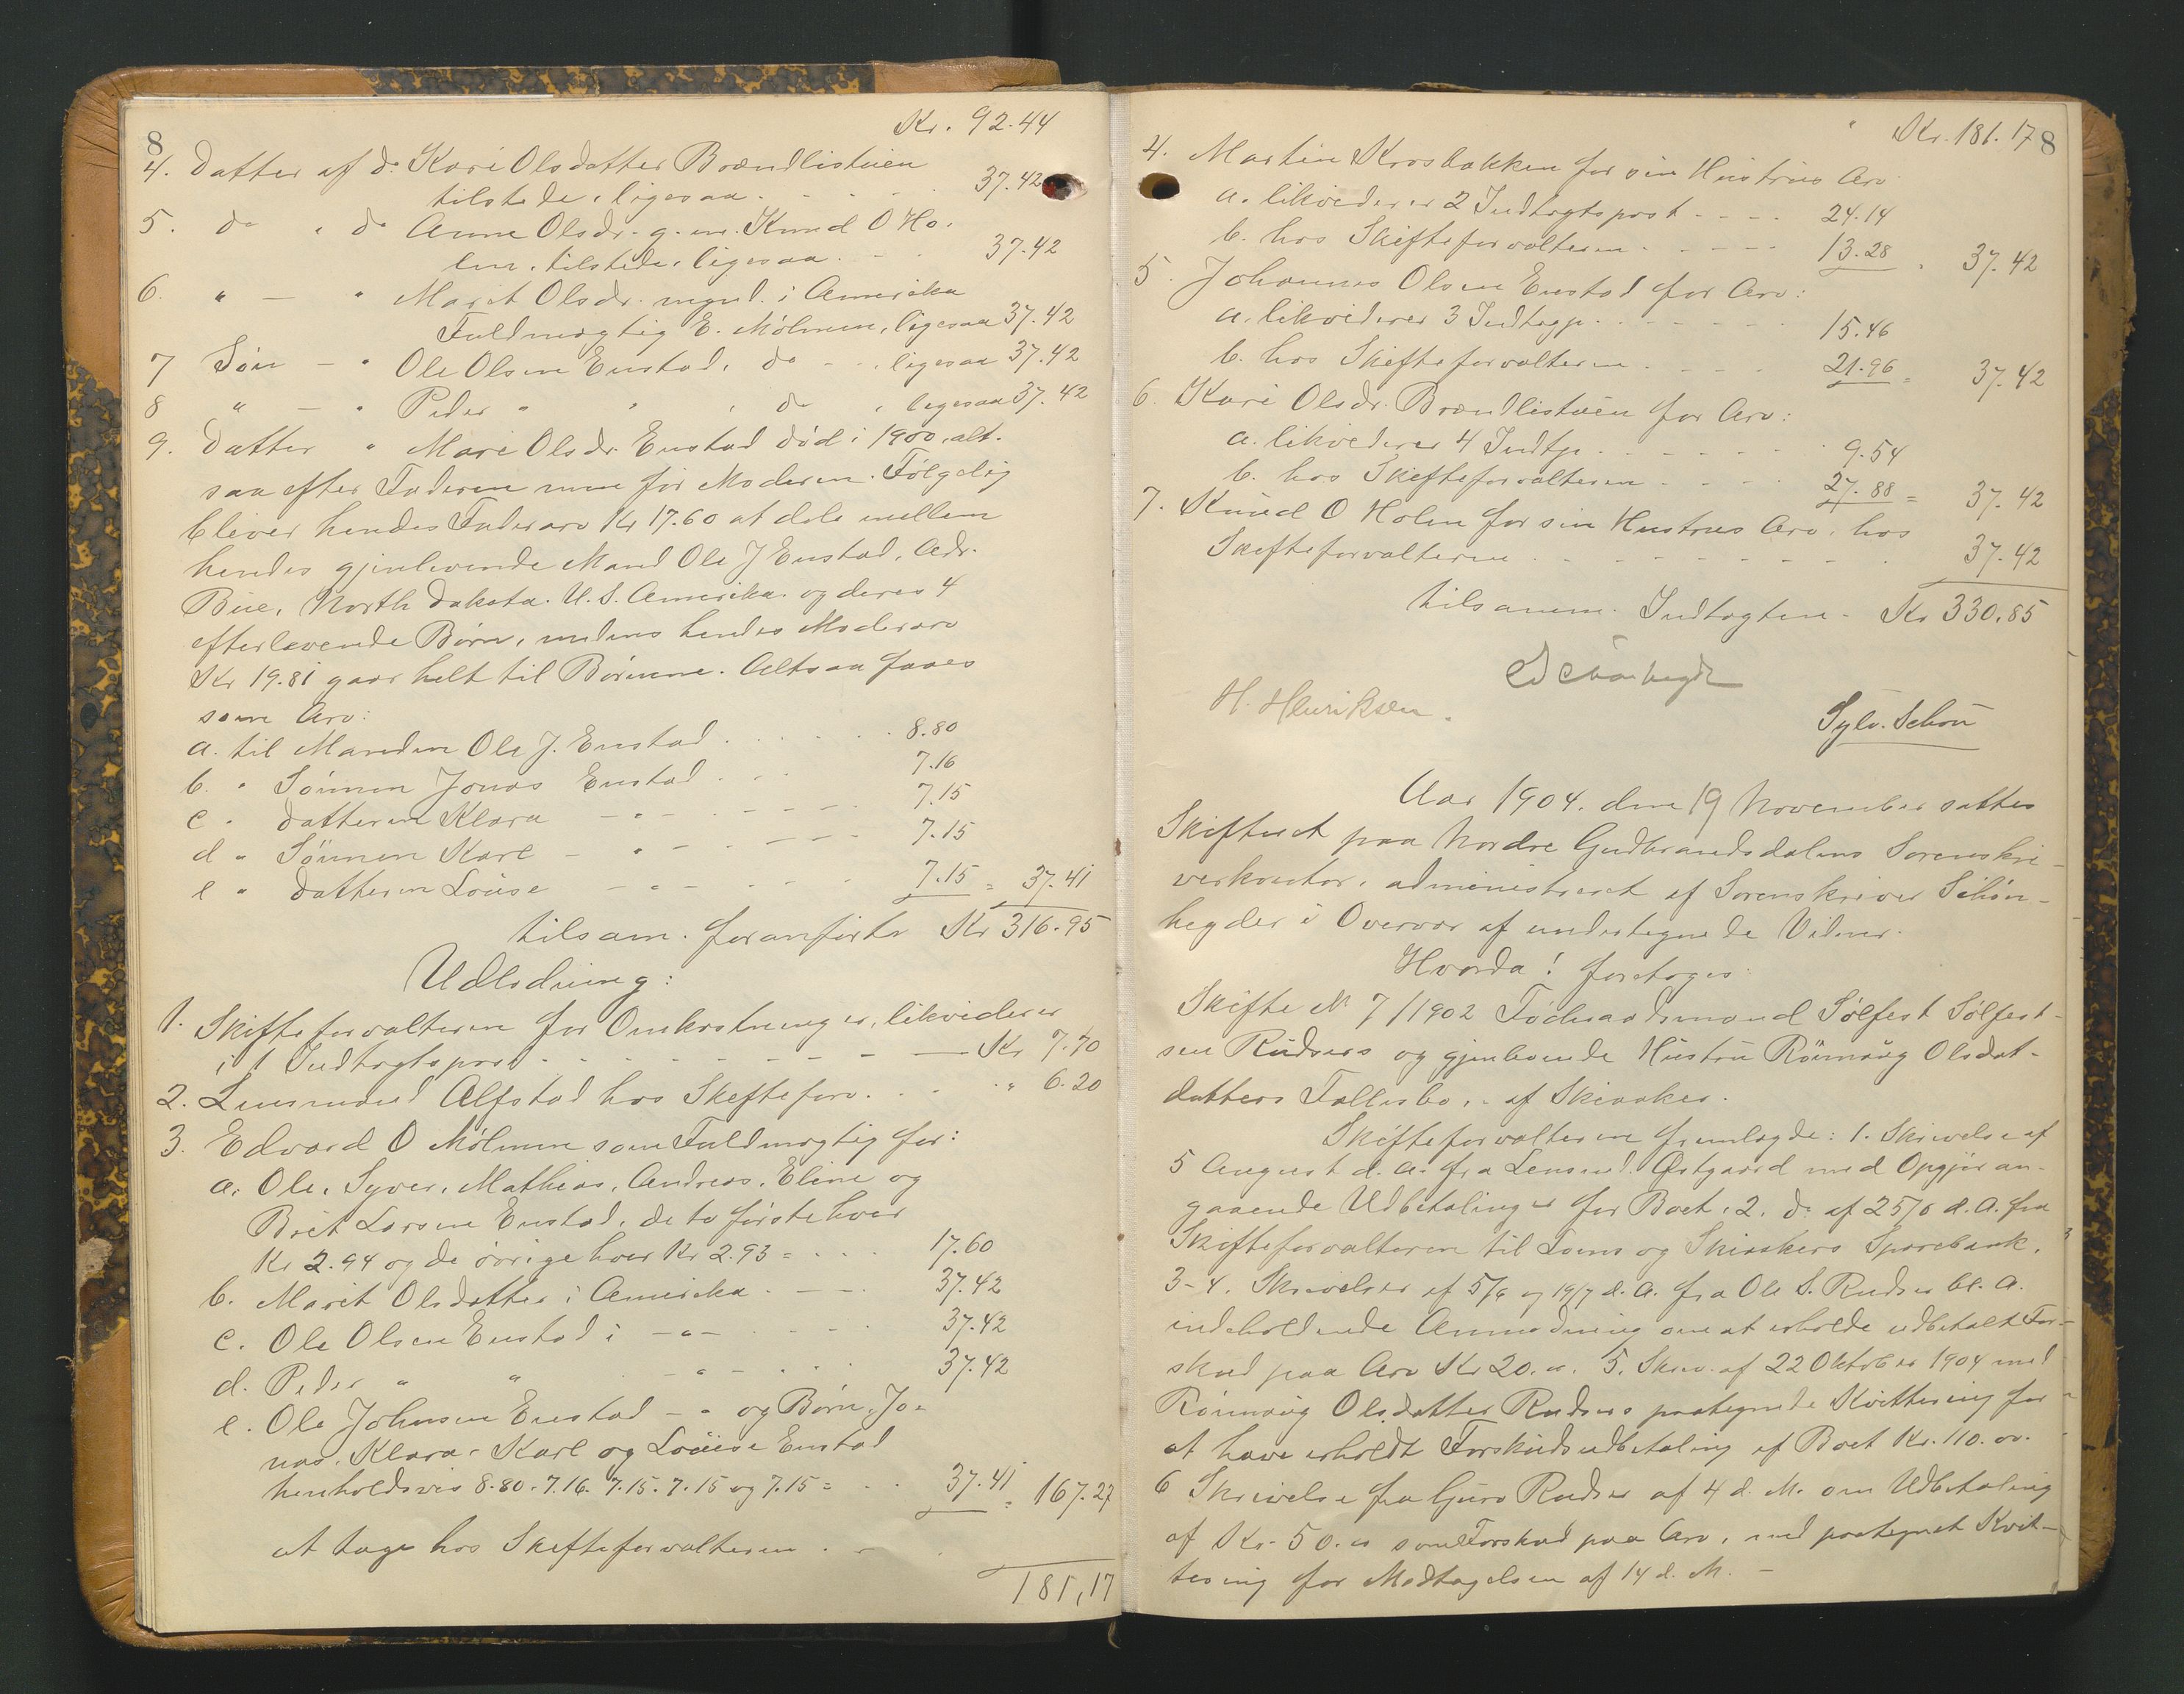 8
Kr. 92.44
4. Datter af do Kari Olsdatter Brændlistuen
tilstede, ligesaa . . . . 37.42
5. do " do Anne Olsdr. g. m. Knud O Ho-
lm, tilstede, ligesaa . . . 37.42
6. " — " Marit Olsdr. mynd. i Amerika
Fuldmægtig E. Mölmen, ligesaa 37.42
7 Søn — " Ole Olsen Enstad, do - - , ligesaa 37.42
8 " — " Peder " " , do , ligesaa 37.42
9. Datter " Mari Olsdr. Enstad död i 1900, alt-
saa efter Faderen men för Moderen. Fölgelig
bliver hendes Faderarv Kr 17.60 at dele mellem
hendes gjenlevende Mand Ole J Enstad, Adr.
Bue, North Dakota. U. S. Amerika og deres 4
efterlevende Börn, medens hendes Moderarv
Kr 19.81 gaar helt til Börnene. Altsaa faaes
som Arv:
a. til Manden Ole J. Enstad . . . . . 8.80
b. " Sönnen Jonas Enstad . . . 7.16
c " Datteren Klara — " — . - - - . 7.15
d " Sönnen Karl — " — . - - - 7.15
e " Datteren Louise — " — . - - - 7.15 = 37.41
tilsam. foranförte Kr 316.95
Udlodning:
1. Skifteforvalteren for Omkostninger, likviderer
i 1 Indtægtspost - - - - - - - - — Kr 7.70
2. Lensmand Alfstad hos Skifteforv. . . . " 6.20
3. Edvard O Mölmen som Fuldmægtig for:
a. Ole, Syver, Mathias, Andreas, Eline og
Brit Larsen Enstad, de to förste hver
Kr 2.94 og de övrige hver Kr 2.93 = . . . 17.60
b. Marit Olsdatter i Amerika . — - . 37.42
c. Ole Olsen Enstad i — " — . - - . 37.42
d. Peder " " — " — . . . 37.42
e. Ole Johnsen Enstad — " og Börn, Jo-
nas, Klara, Karl og Louise Enstad
henholdsvis 8.80. 7.16. 7.15. 7.15 og 7.15 = . . 37.41 = 167.27
at tage hos Skifteforvalteren . -
181,17
Kr. 181.17
8
4. Martin Krosbakken for sin Hustrus Arv
a. likviderer 2 Indtægtspost - - - - 24.14
b. hos Skifteforvalteren . - - - - 13.28 . 37.42
5. Johannes Olsen Enstad for Arv:
a. likviderer 3 Indtægp. - - - - - - 15.46
b. hos Skifteforvalteren . - - - . 21.96 = 37.42
6. Kari Olsdr. Brændlistuen for Arv:
a. likviderer 4 Indtp. - - - - - . 9.54
b. hos Skifteforvalteren . - - - . 27.88 = 37.42
7. Knud O Holm for sin Hustrus Arv, hos
Skifteforvalteren . - - - - - - - - . 37.42
tilsamm. Indtægten - Kr 330.85
H. Henriksen.
Sylv. Schou
Aar 1904. den 19 November sattes
Skifteret paa Nordre Gudbrandsdalens Sorenskri-
verkontor, administreret af Sorenskriver Schön-
heyder i Overvær af undertegnede Vidner.
Hvorda! foretoges:
Skifte N 7/1902 Föderaadsmand Sölfest Sölfest-
sen Rudsers og gjenlevende Hustru Rönnaug Olsdat-
datters Fællesbo, - af Skiaaker.
Skifteforvalteren fremlagde: 1. Skrivelse af
5 August d. A. fra Lensmd. Østgaard med Opgjør an-
gaaende Udbetalinger for Boet. 2. do af 25/8 d. A. fra
Skifteforvalteren til Loms og Skiaakers Sparebank.
3-4. Skrivelser af 5/6 og 19/7 d. A. fra Ole S. Rudser bl. A.
indeholdende Anmodning om at erholde udbetalt For-
skud paa Arv Kr 20. oo. 5. Skriv. af 22 Oktober 1904 med
Rönnaug Olsdatter Rudsers paategnede Kvittering for
at have erholdt Forskudsudbetaling af Boet Kr. 110. oo.
6 Skrivelse fra Guro Rudser af 4 d. M. om Udbetaling
af Kr. 50. oo som Forskud paa Arv, med paategnet Kvit-
tering for Modtagelsen af 14 d. M. -